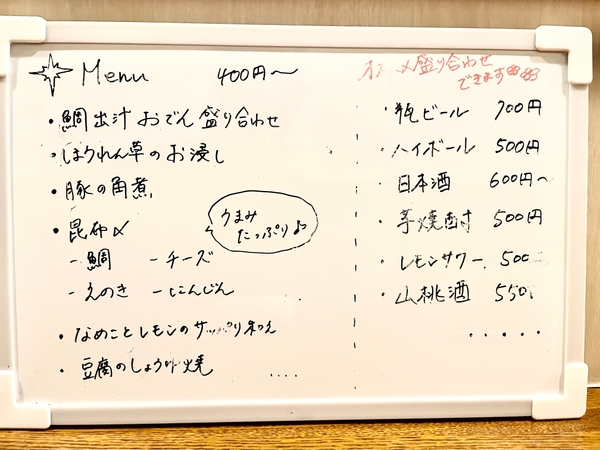 Menu 400円〜
・鯛出汁おでん盛り合わせ
・ほうれん草のお浸し
・豚の角煮
・昆布〆
- 鯛 - チーズ
- えのき - にんじん
うまみ
たっぷり♪
・なめことレモンのサッパリ和え
・豆腐のしょうゆ焼
....
〆盛り合わせ
できます
・瓶ビール 700円
・ハイボール 500円
・日本酒 600円〜
・芋焼酎 500円
・レモンサワー 500
・山桃酒 550
.....